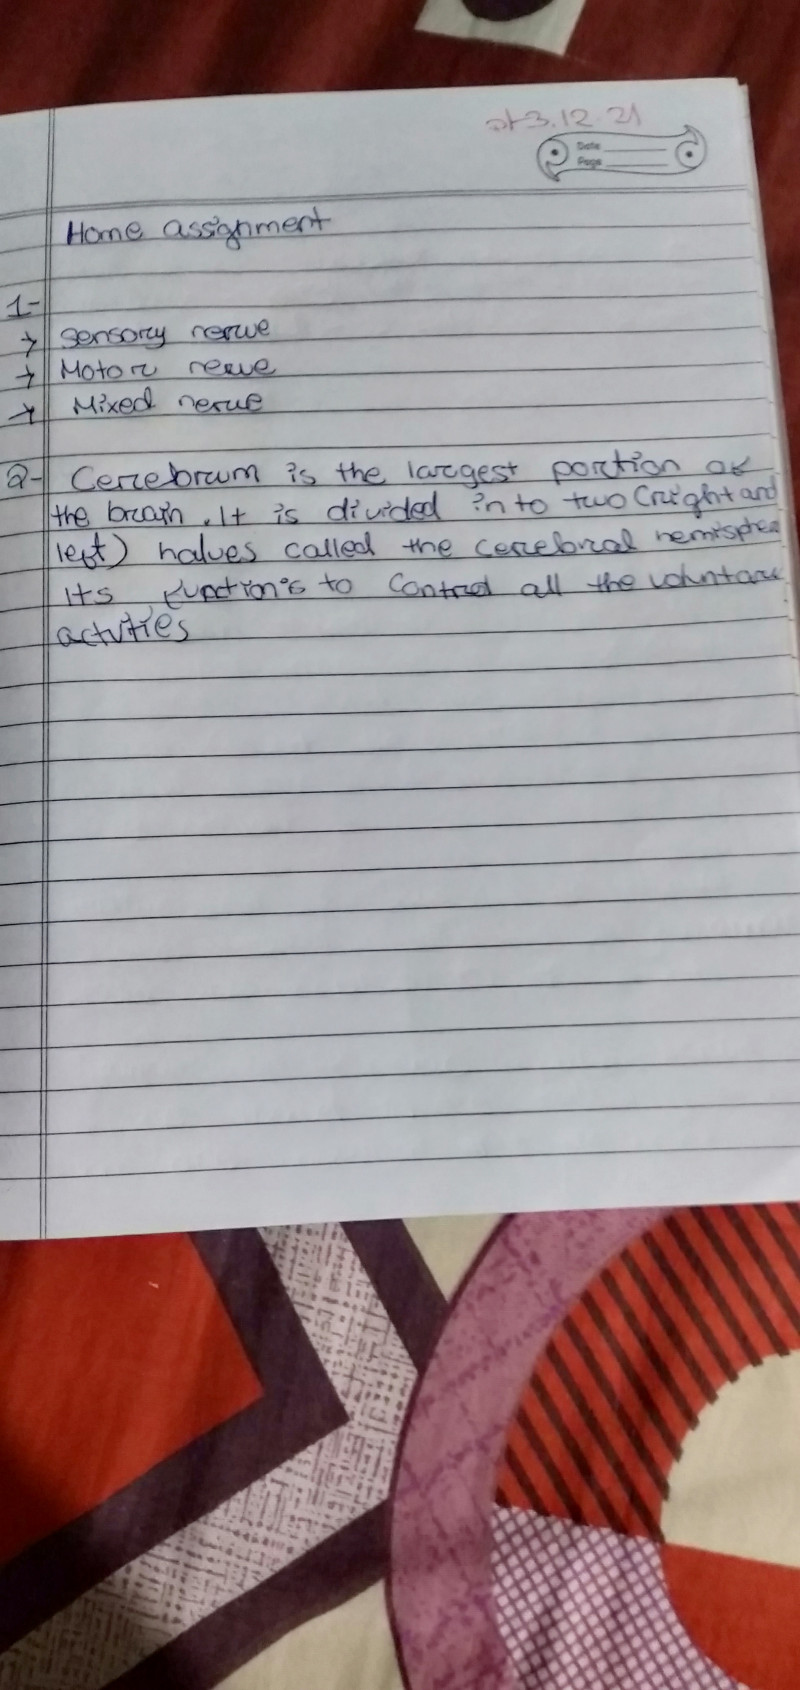 dt 3.12.21
Date
Page
Home assignment
1-
→ Sensory nerve
→ Motor nerve
→ Mixed nerve
2- Cerebrum is the largest portion of
the brain. It is divided into two (right and
left) halves called the cerebral hemisphe
Its function's to control all the voluntary
actvities